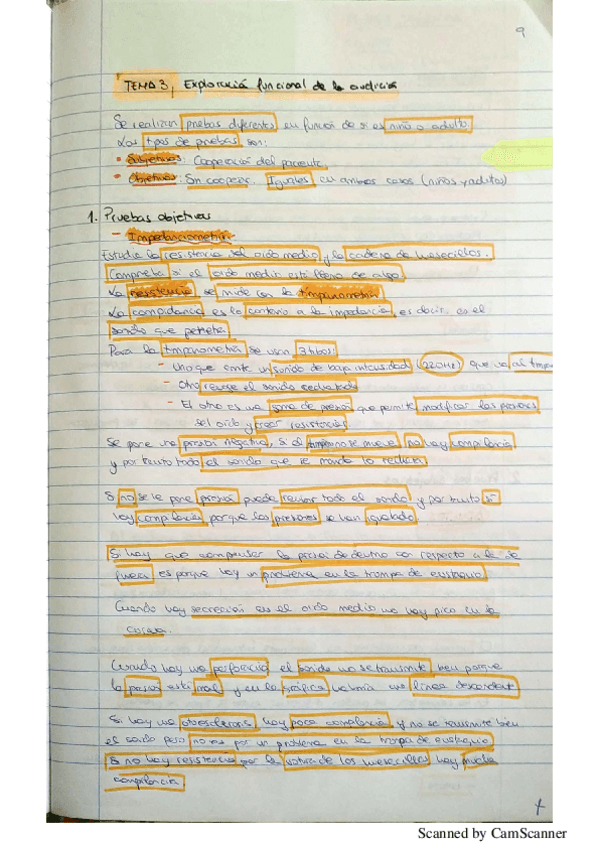 9
TEMA 3, Exploración funcional de la audición
Se realizan pruebas diferentes en función de si es niño o adulto
Los tipos de pruebas son:
- Subjetivas: Cooperación del paciente.
- Objetivas: Sin cooperar. Iguales en ambos casos (niños y adultos)
1. Pruebas objetivas
- Impedanciometría
Estudia la resistencia del oído medio y la cadena de huesecillos.
Comprueba si el oído medio está lleno de algo
La resistencia se mide con la timpanometría
La compliancia es lo contrario a la impedancia, es decir, es el
sonido que penetra.
Para la timpanometría se usan 3 tubos:
- Uno que emite un sonido de baja intensidad (220Hz) que va al
- Otro recoge el sonido
- El otro es una de presión que permite modificar las presiones
del oído y crear resistencias
Se pone una presión negativa, si el tímpano no se mueve, no hay compliancia
y por tanto todo el sonido que se manda lo
Si no se le pone presión puede todo el sonido y por tanto sí
hay compliancia porque las presiones se han igualado.
Si hay que compensar la presión de dentro con respecto a la de
fuera es porque hay un problema en la trompa de eustaquio
Cuando hay secreción en el oído medio no hay pico en la
Cuando hay una perforación el sonido no se transmite bien porque
la presión está mal y en la gráfica una línea descendente
Si hay una otoesclerosis, hay poca compliancia y no se transmite bien
el sonido pero no es por un problema en la trompa de eustaquio
Si no hay resistencia por la de los huesecillos hay mucha
compliancia
Scanned by CamScanner